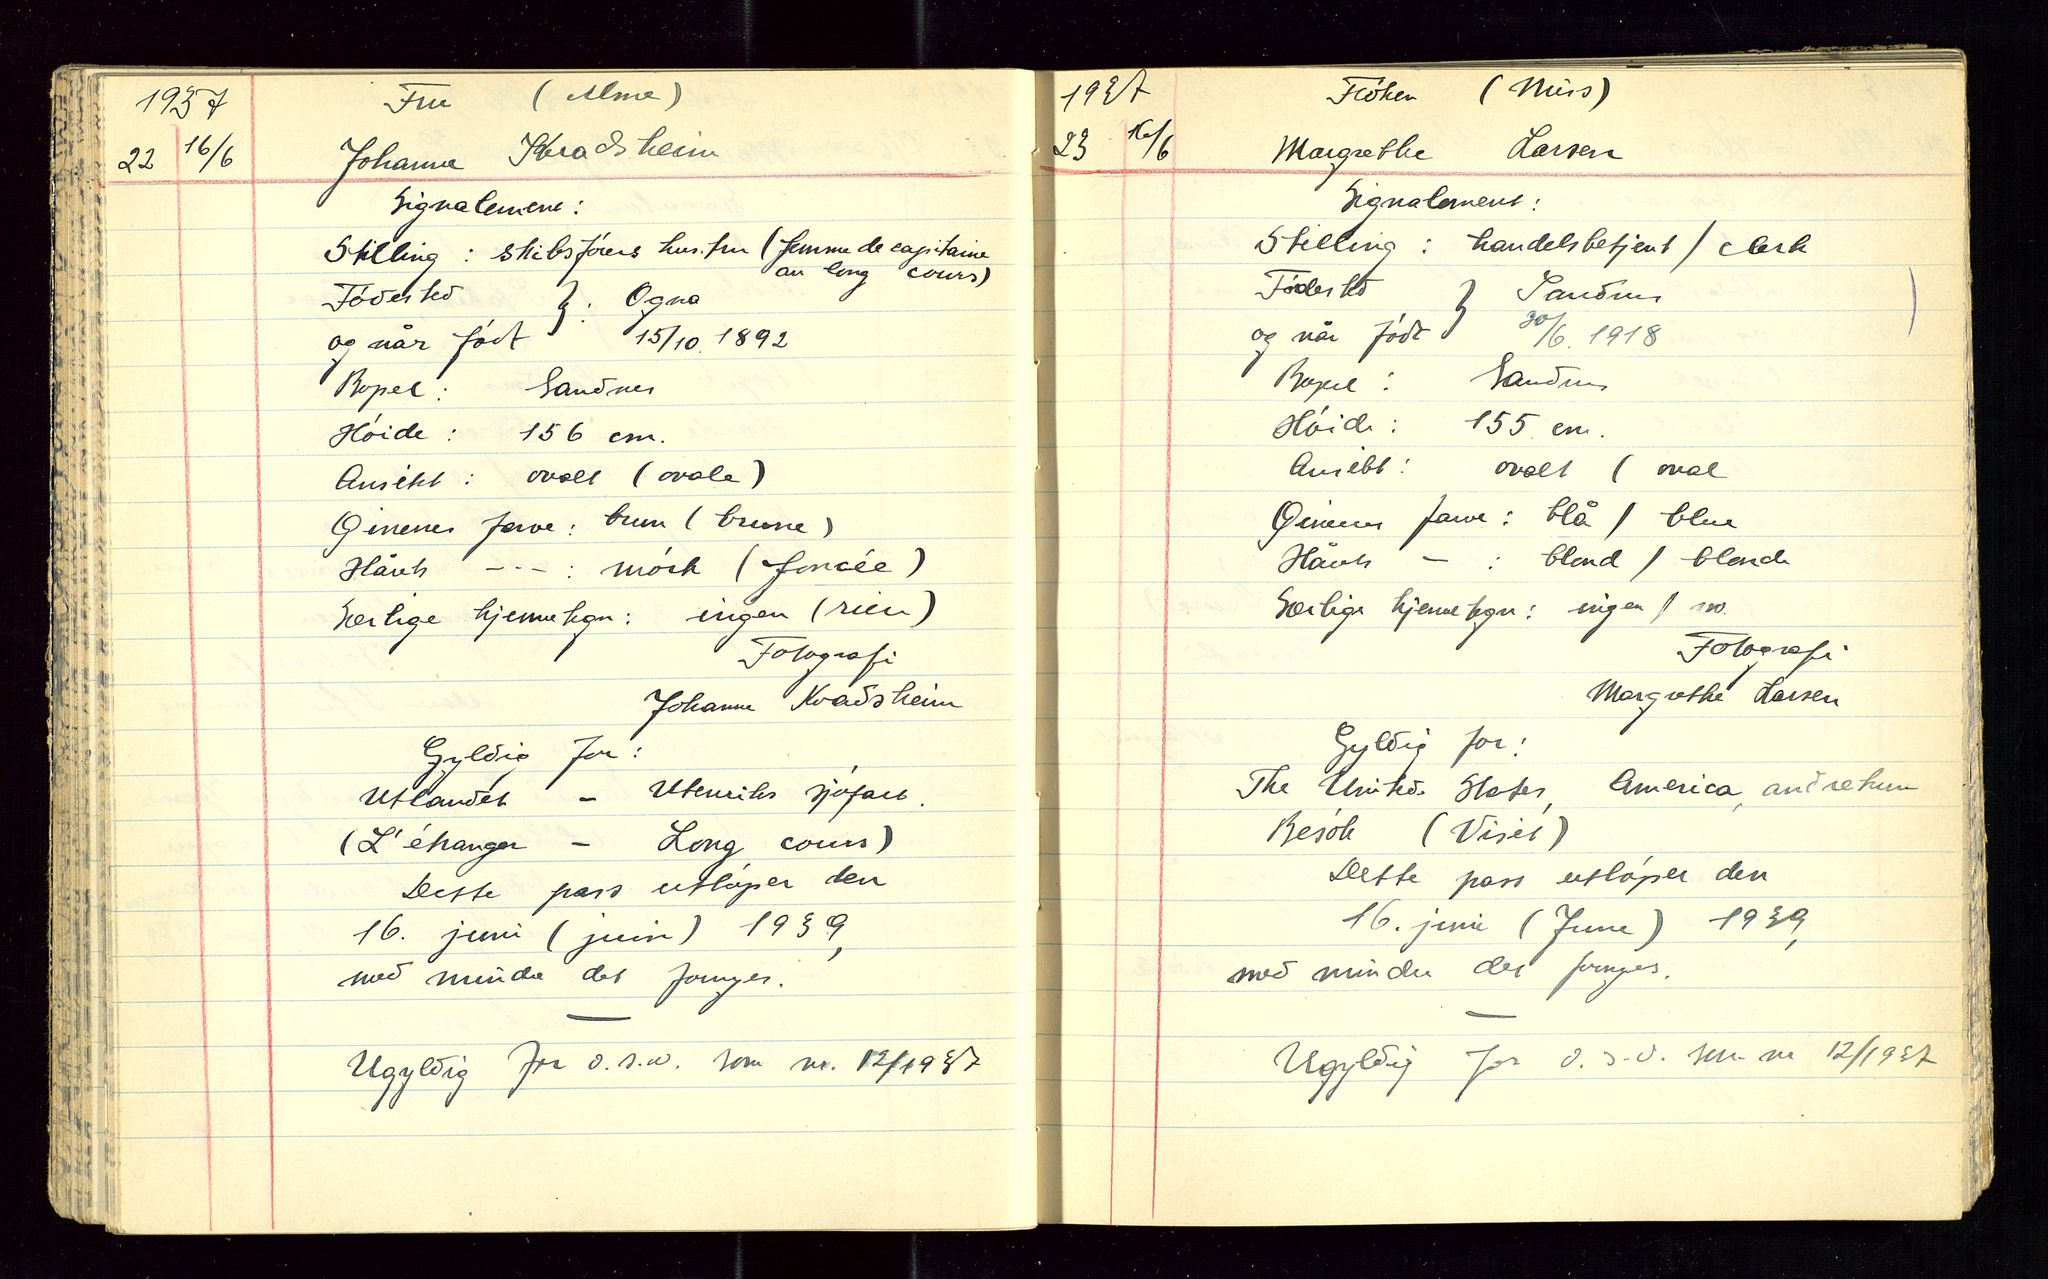 1937 Fru (Mme)
22 16/6 Johanne Kvadsheim
Signalement:
Stilling: skibsførers hustru (femme de capitaine
au long cours)
Fødested } : Ogna
og når født 15/10. 1892
Bopel: Sandnes
Høide: 156 cm.
Ansikt: ovalt (ovale)
Øinenes farve: brun (brune)
Hårets - - - : mørk (foncée)
Særlige kjennetegn: ingen (rien)
Fotografi
Johanne Kvadsheim
Gyldig for:
Utlandet - Utenriks sjøfart.
(L'étranger - Long cours)
Dette pass utløper den
16. juni (juin) 1939,
med mindre det fornyes.
Ugyldig for o.s.v. som nr. 12/1937
1937 Frøken (Miss)
23 16/6 Margrethe Larsen
Signalement:
Stilling: handelsbetjent / clerk
Fødested } Sandnes
og når født 30/6. 1918
Bopel: Sandnes
Høide: 155 cm.
Ansikt: ovalt ( oval
Øinenes farve: blå / blue
Hårets - : blond / blonde
Særlige kjennetegn: ingen / no.
Fotografi
Margrethe Larsen
Gyldig for:
The United States, America, and return
Besøk (Visit)
Dette pass utløper den
16. juni (June) 1939,
med mindre det fornyes.
Ugyldig for o.s.v. som nr 12/1937